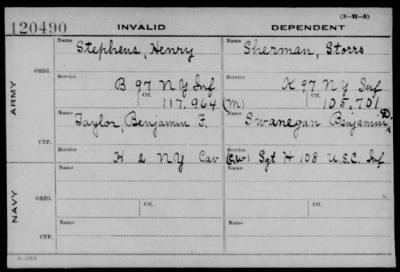 (3-11-5)
120490 INVALID DEPENDENT
Name Name
Stephens, Henry Sherman, Storrs
ORIG. Service Service
B 97 NY Inf K 97 NY Inf
Ctf. Ctf.
117,964 (m) 105,701
ARMY
Name Name
Taylor, Benjamin F. Swanegan Benjamin D.
CTF. Service Service
H 2 NY Cav (C.W) Sgt H 108 U.S.C. Inf
Name Name
ORIG.
Ctf. Ctf.
NAVY
Name Name
CTF.